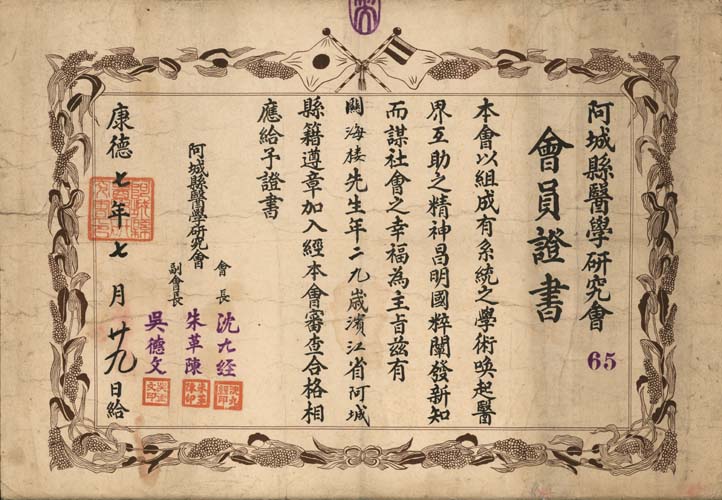 阿城縣醫學研究會
65
會員證書
本會以組成有系統之學術喚起醫
界互助之精神昌明國粹闡發新知
而謀社會之幸福為主旨茲有
關海楼先生年二九歲濱江省阿城
縣籍遵章加入經本會審查合格相
應給予證書
阿城縣醫學研究會
會長 沈九經
副會長 朱革陳
吳德文
康德七年七月廿九日給